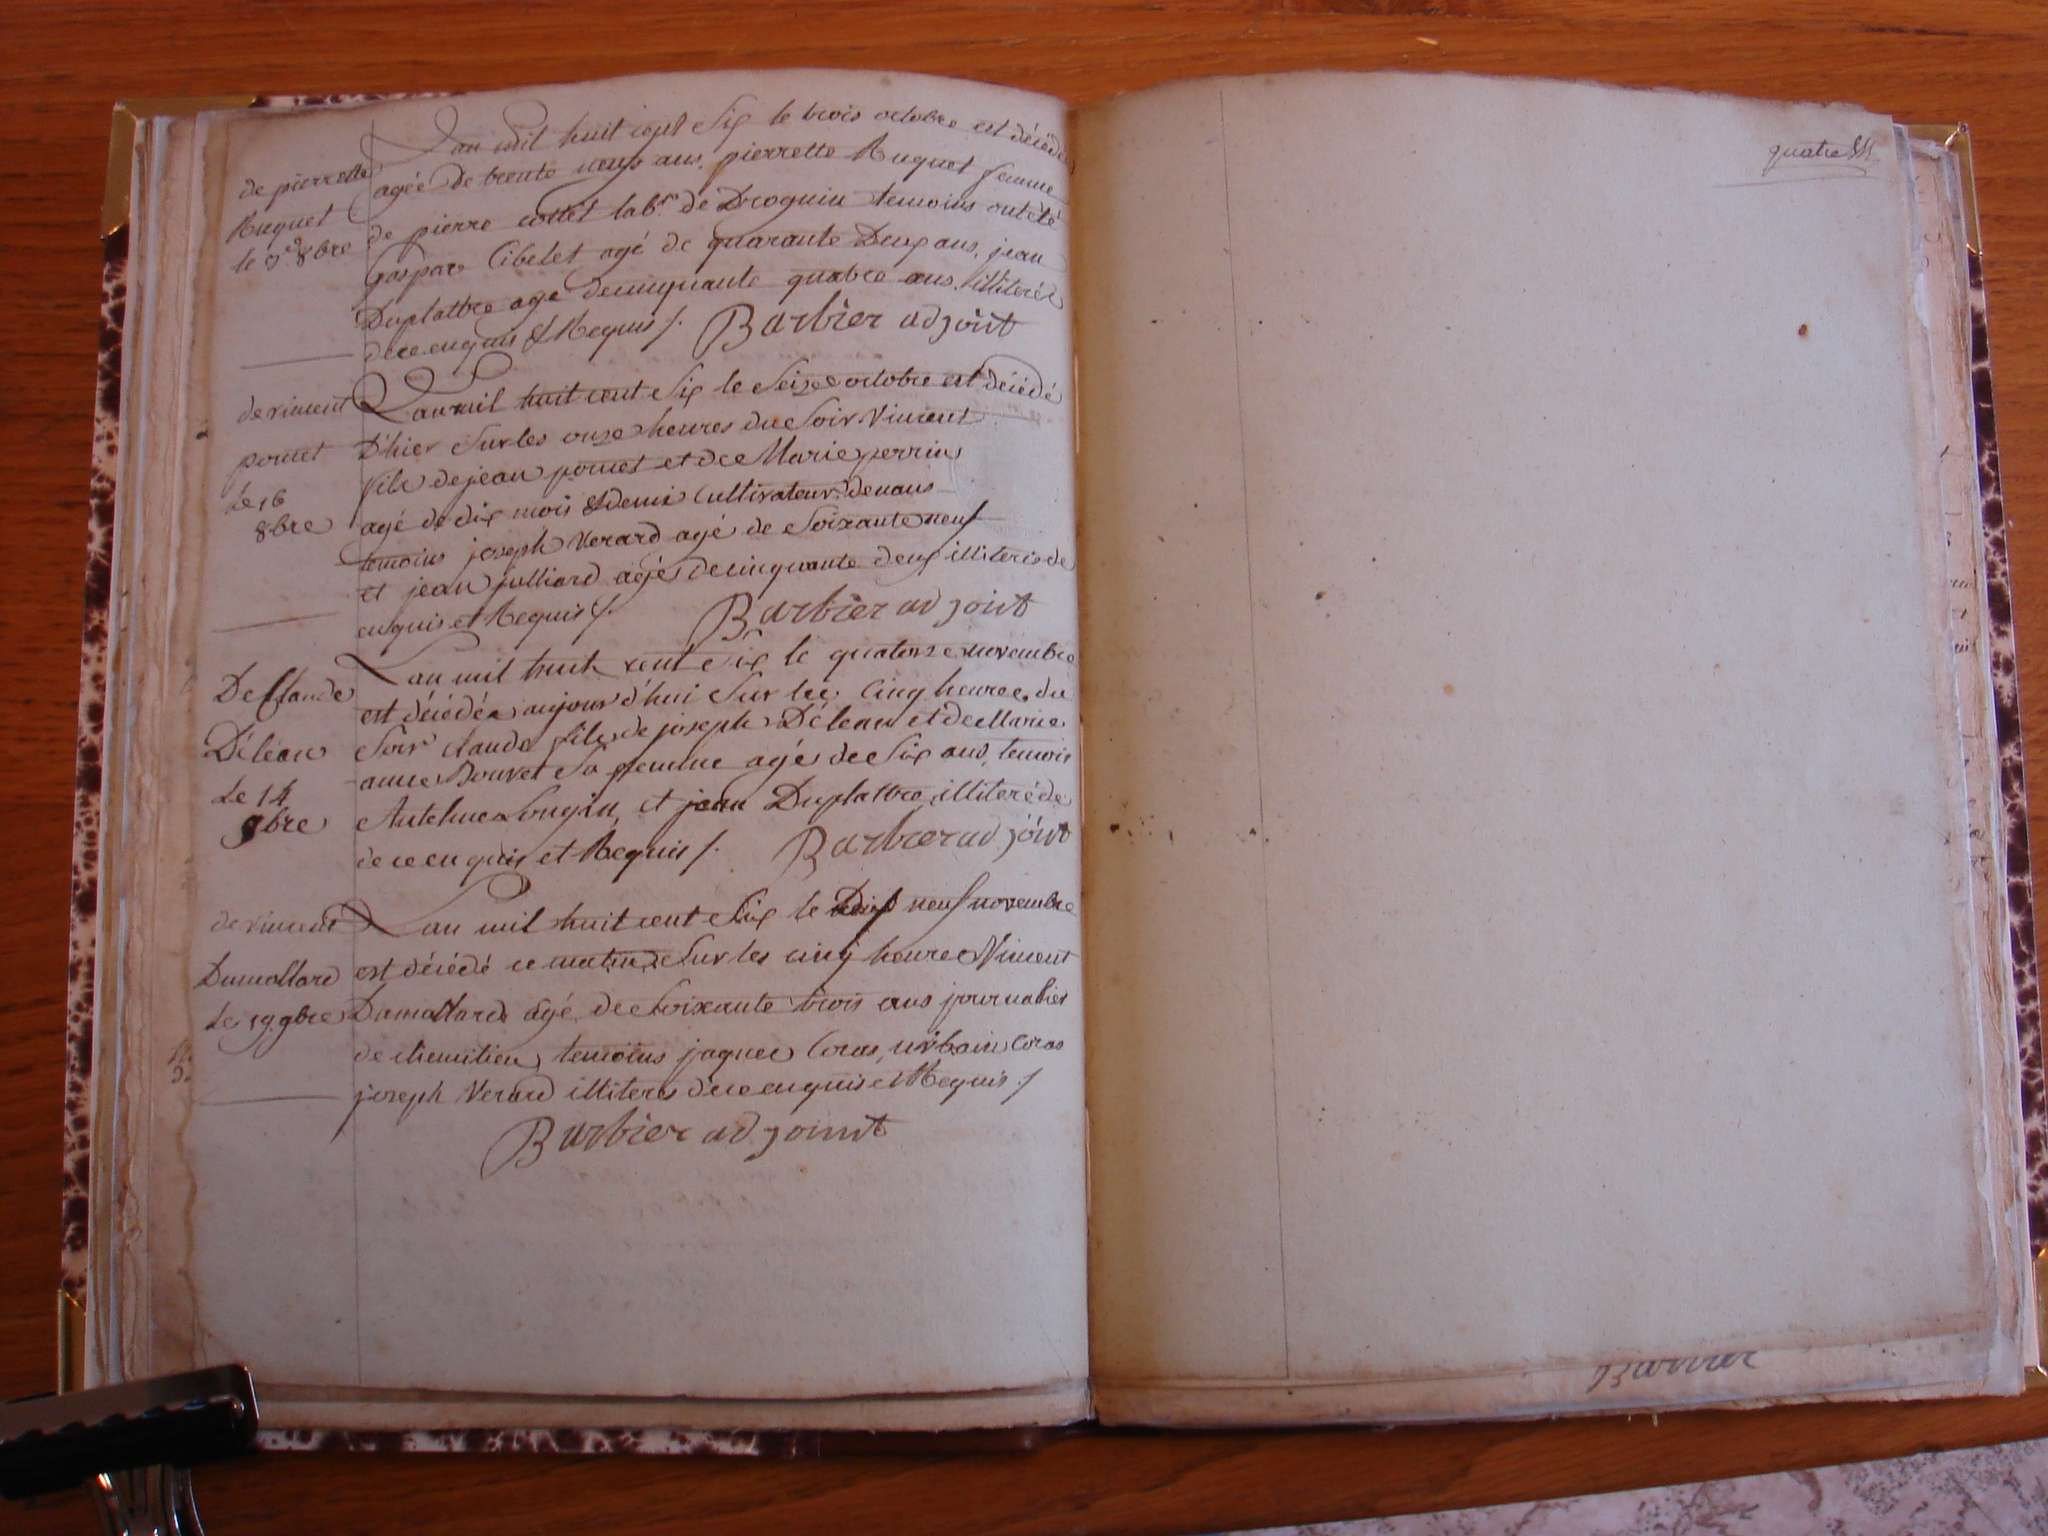 L'an mil huit cent six le trois octobre est décédée
de pierrette
agée de trente neuf ans, pierrette Ruquet femme
Ruquet
de pierre collet lab.r de Drognin temoins ont été
le 3.e 8bre
Gaspar Cibelet agé de quarante Deux ans, jean
Duplattre age de cinquante quatre ans. illiteré
de ce enquis & Requis /. Barbier adjoint
de vincent
L'an mil huit cent six le seize octobre est décédé
pornet
D'hier sur les onze heures du soir Vincent
fils de jean pornet et de Marie perrin
Le 16
8bre
agé de dix mois & demi Cultivateur
temoins joseph Verard agé de soixante neuf
et jean julliard agé de cinquante deux illiteris de
enquis et Requis /. Barbier adjoint
De Claude
L'an mil huit cent six le quatorze novembre
est décédé aujourd'hui sur les cinq heures du
Déléan
soir claude fils de joseph Déléan et de Marie
anne Bouvet sa femme agé de six ans, temois
Le 14
9bre
Antelme Longin, et jean Duplattre illiteré de
de ce enquis et Requis /. Barbier adjoint
de vincent
L'an mil huit cent six le Dix neuf novembre
Dumollard
est décédé ce matin sur les cinq heures Vincent
Le 19 9bre
Dumollard agé de soixante trois ans journalier
de chemilieu, temoins jaques Coras, urbain Coras
joseph Verard illiteres de ce enquis et Requis /.
Barbier adjoint
quatre